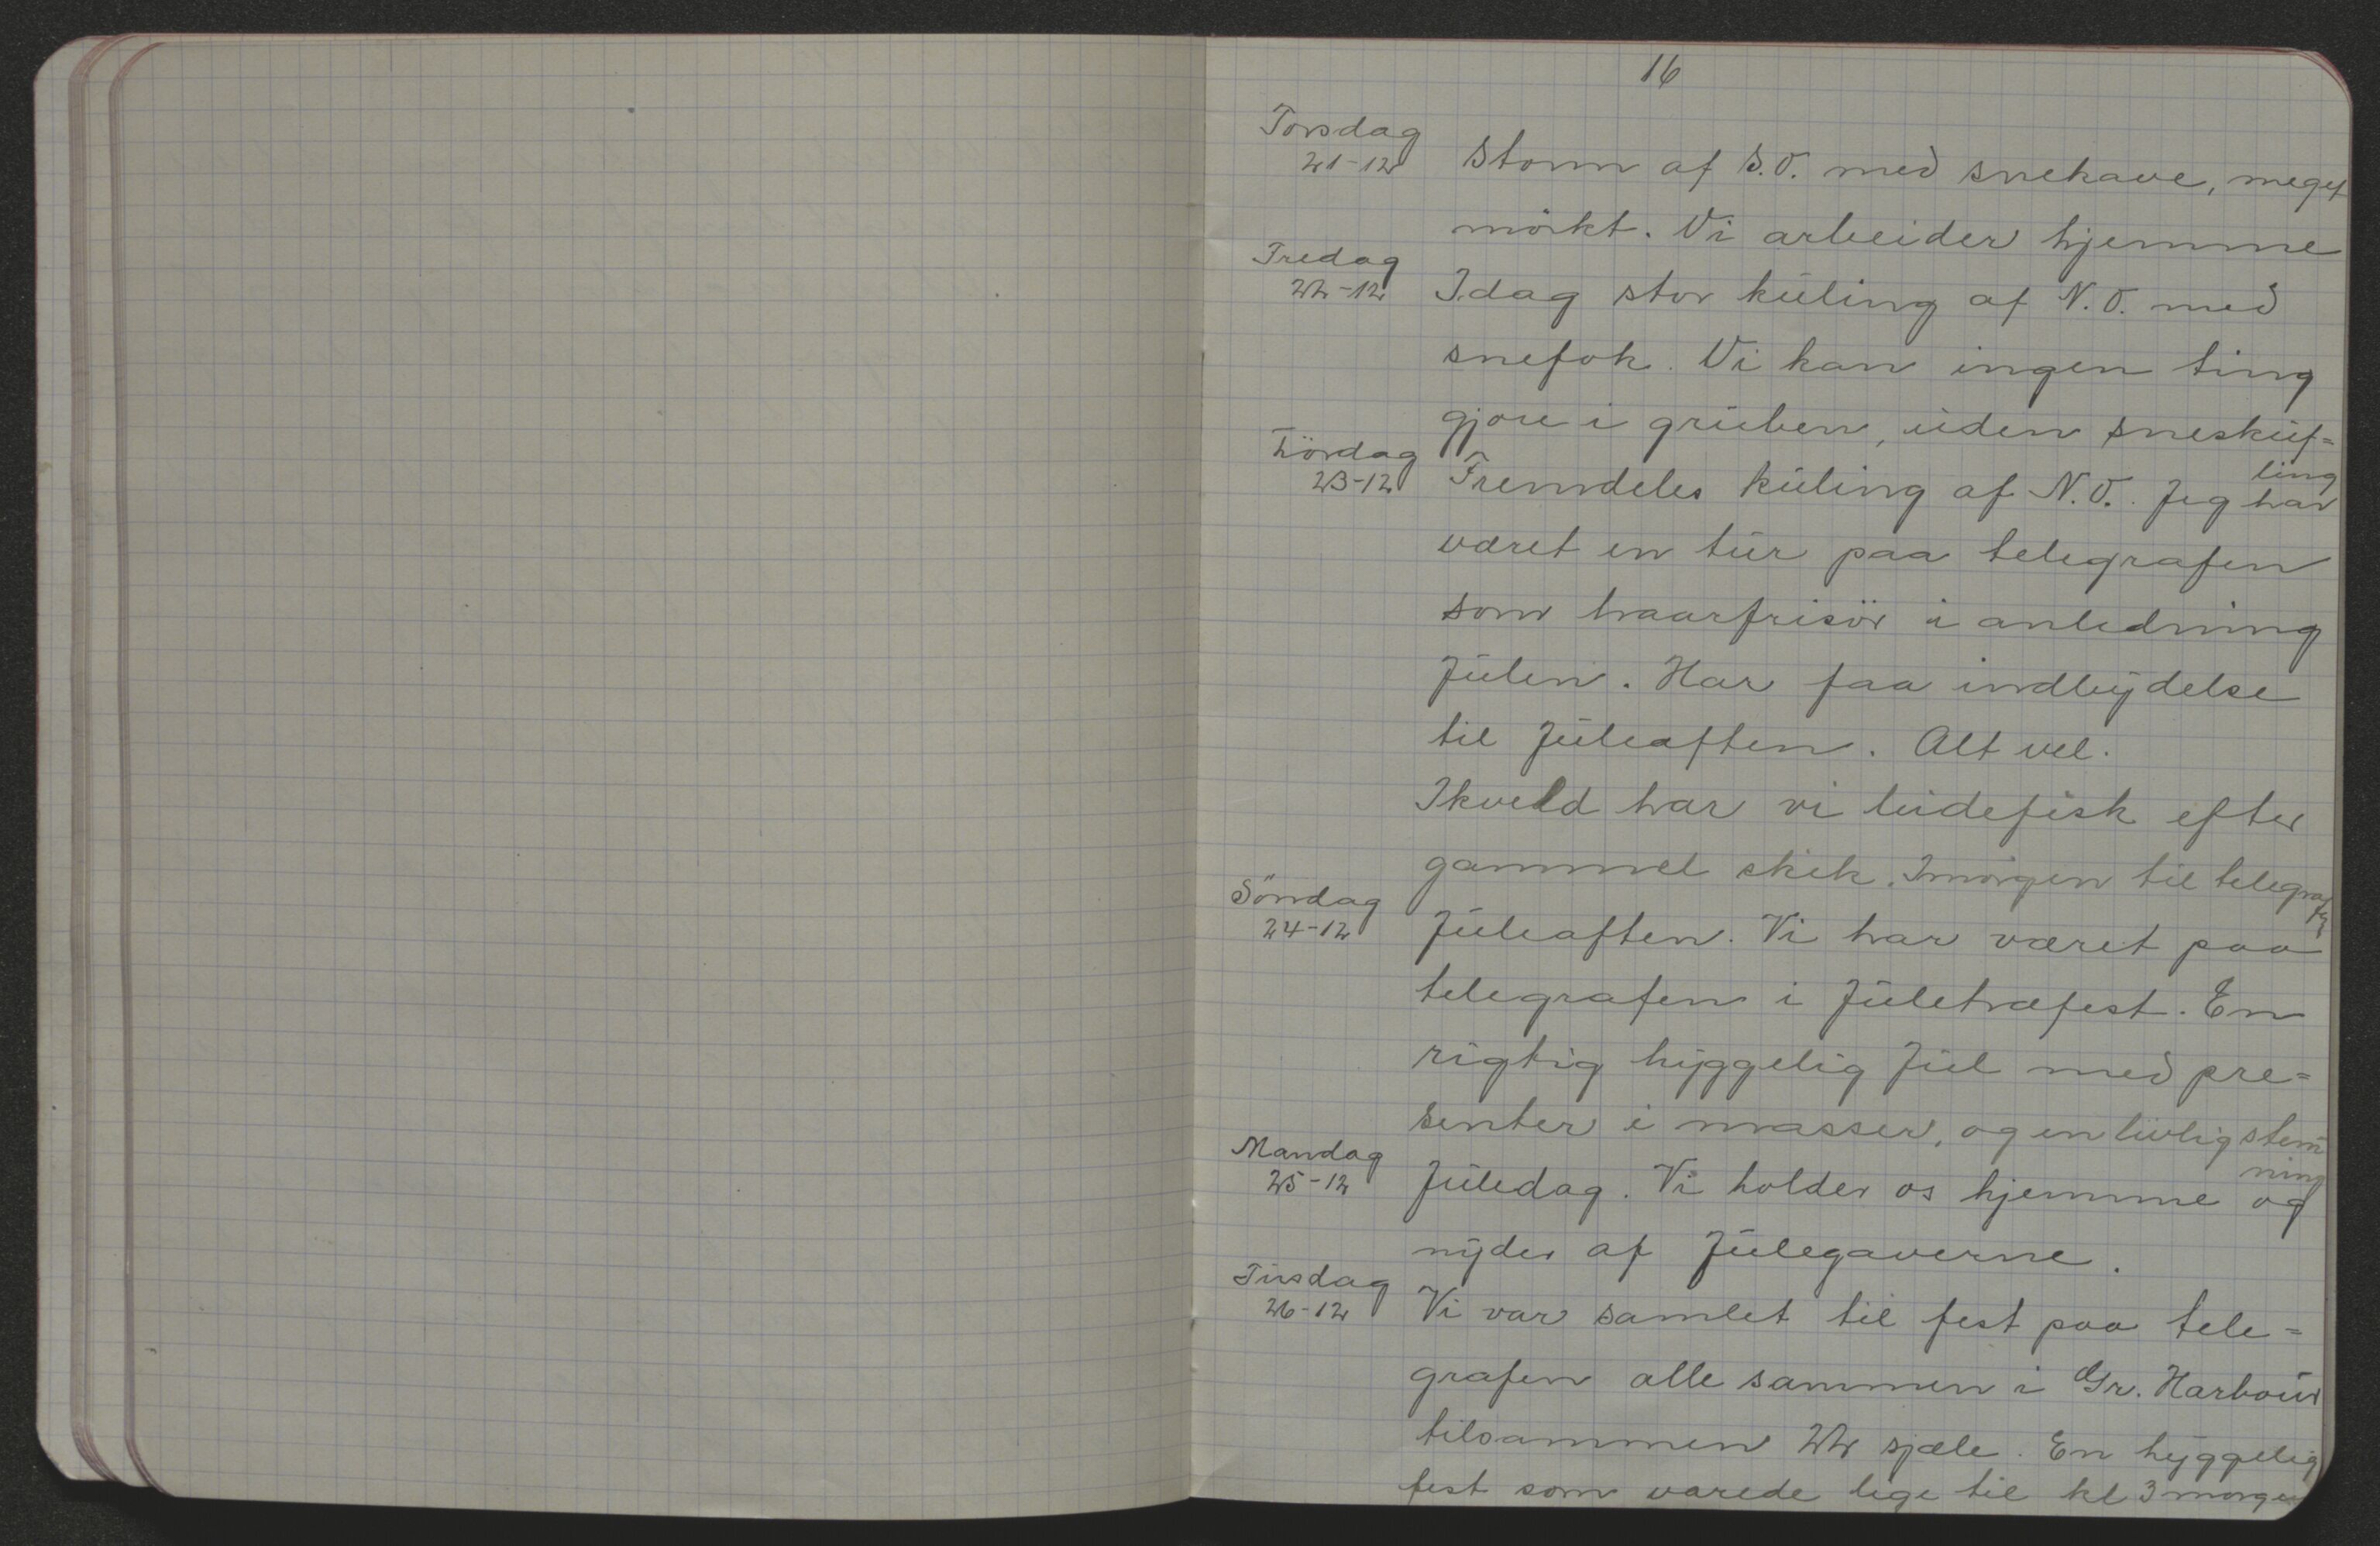 16
Torsdag
21-12 Storm af S.O. med snekave, meget
mörkt. Vi arbeider hjemme
Fredag
22-12 Idag stor kúling af N.O. med
snefok. Vi kan ingen ting
gjøre i grúben, úden sneskúf=
ling
Lördag
23-12 Fremdeles kúling af N.O. Jeg har
været en túr paa telegrafen
som haarfrisör i anledning
Júlen. Har faa indbydelse
til Júleaften. Alt vel.
Ikveld har vi lúdefisk efter
gammel skik. Imorgen til telegrafen
Söndag
24-12 Júleaften. Vi har været paa
telegrafen i Júletræfest. En
rigtig hyggelig Júl med pre=
senter i masser, og en livlig stem
ning
Mandag
25-12 Júledag. Vi holder os hjemme og
nyder af Júlegaverne.
Tirsdag
26-12 Vi var samlet til fest paa tele=
grafen alle sammen i Gr. Harboúr
tilsammen 22 sjæle. En hyggelig
fest som varede lige til kl 3 morgen